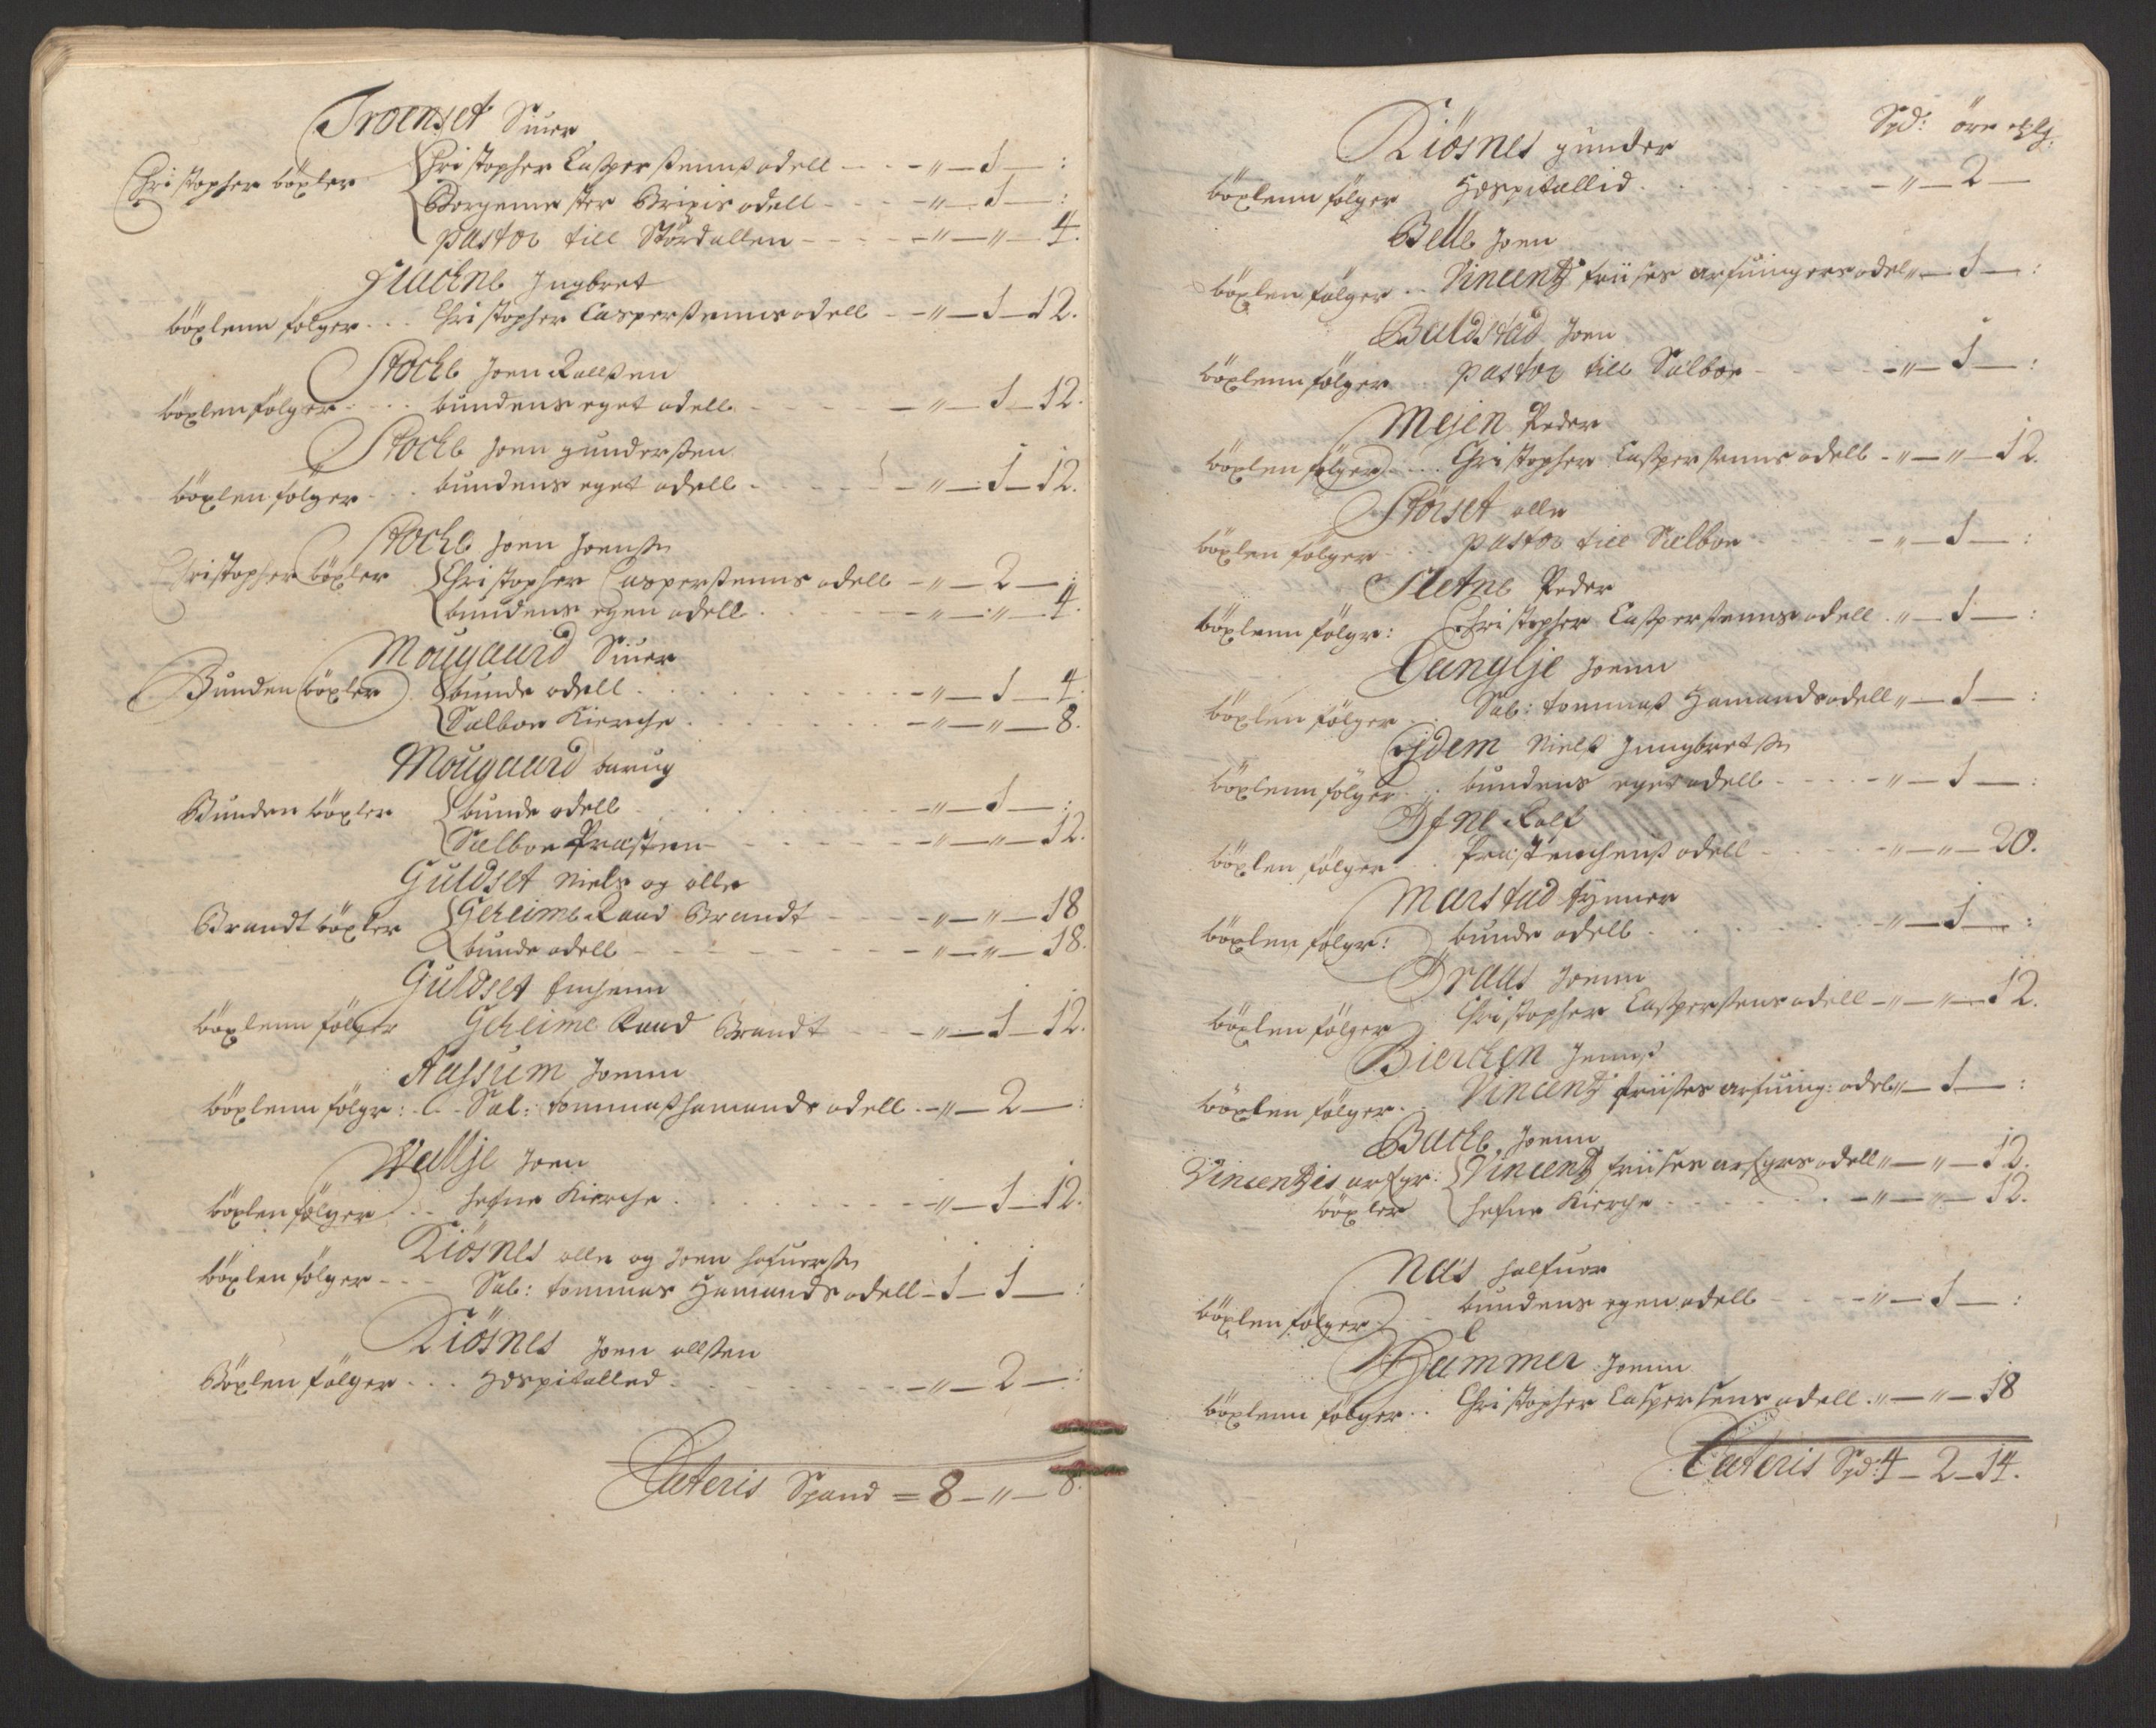 Troenset Siuer
Christopher böxler Christopher Casperßennß odell - - - „ — 1 — :
Borgemester Bripis odell - - - „ — 1 — :
pastor till Stördallen - - - „ — „ — 4.
Ingbret
böxlenn fölger . . . Christopher Casperßenns odell - - „ — 1 — 12.
Stochb Joen Rollßen
böxlen fölger . . . bundens eget odell - - „ — 1 — 12.
Stochb Joen gunderßen
böxlen fölger - . . bundens eget odell - - „ — 1 — 12.
Stochb Joen Joenßn
Christopher böxler Christopher Casperßenns odell - „ — 2 — :
bundens egen odell . - „ — „ — 4.
Mougaard Siuer
Bunden böxler bunde odell . . . - „ — 1 — 4.
Salboe Kierche . . . - „ — „ — 8.
Mougaard baruig
Bunden böxler bunde odell . . . - „ — 1 — :
Selboe Præsten - - „ — „ — 12.
Guldset Niels og olle
Brandt böxler Geheime Raad Brandt - - „ — „ — 18
bunde odell - - - „ — „ — 18.
Guldset
böxlenn fölger Geheime Raad Brandt - - „ — 1 — 12.
Aassum Joenn
böxlenn fölgr: . . Sal: tommaß hamands odell . - „ — 2 — :
Wallje Joen
böxlen fölger . . hefne Kierche . . . - „ — 1 — 12.
Kiösnes olle og Joen hafuerßn
böxlen fölger - - - Sal: tommas Hamands odell - 1 — 1 — :
Kiösnes Joen ollßen
Böxlen fölger . . . Hospitalled . . . - „ — 2 — :
Lateris Spand = 8 — „ — 8.
Spd: öre
Kiösnes gunder
böxlenn fölger Hospitallid . . . - „ — 2 —
Bellb Joen
böxlen fölger . . Vincentz friises arfuingers odel „ — 1 — :
Buldstad Joen
böxlenn fölger pastor till Sælboe - - „ — 1 — :
Mejen Peder
böxlen fölger . . . Christopher Casperßenns odell - „ — „ — 12.
Störset olle
böxlen fölger . . pastor till Selboe - - „ — 1 — :
Sletne Peder
böxlenn fölgr: Christopher Casperßenns odell . „ — 1 — :
Langlje Joenn
böxlen fölger . . Sal: tommaß Hamands odell „ — 1 — :
Eidem Nielß Jnngbretßn
böxlenn fölger . . bundens eget odell - - - „ — 1 — :
Öfne Rolf
böxlen fölger . . odell - - „ — „ — 20.
Marstad
böxlen fölgr: bunde odell . . . - „ — 1 — :
Draas Joenn
böxlen fölger Christopher Casperßens odell - „ — „ — 12.
Bierchen Jennß
böxlen fölger . . Vincentz friises arfuing: odel „ — 1 — :
Bachb, Joenn
Vincentzis arfgr: Vincentz friises arfgrs odell „ — „ — 12.
böxler hefne Kierche - - - „ — „ — 12.
Näs halfuor
böxlen fölger . . bundens egen odell - - - „ — 1 — :
Hammer Joenn
böxlenn fölger . . Christopher Caspersens odell . „ — „ — 18
Lateris Spd: 4 — 2 — 14.